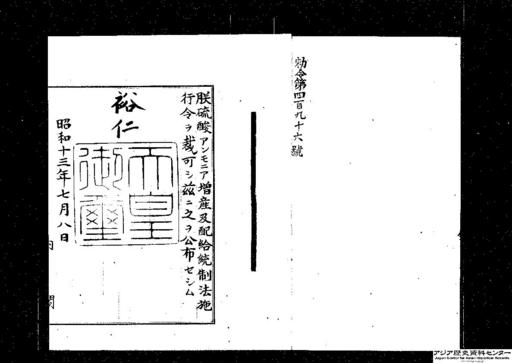 勅令第四百九十六號
朕硫酸アンモニア増産及配給統制法施
行令ヲ裁可シ茲ニ之ヲ公布セシム
裕仁
天皇御璽
昭和十三年七月八日
内閣
アジア歴史資料センター
Japan Center for Asian Historical Records